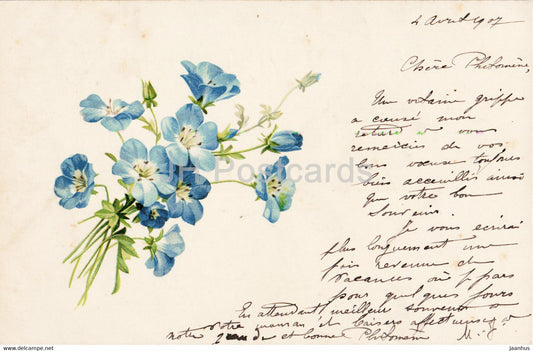 4 Avril 1907
Chère Philomène,
Une vilaine grippe
a causé mon
retard à vous
remercier de vos
bons vœux toujours
bien accueillis ainsi
que votre bon
souvenir.
Je vous écrirai
plus longuement une
fois revenue de
vacances où je pars
pour quelques jours
En attendant, meilleur souvenir
à votre maman et baisers affectueux à
notre et bonne Philomène M. E.
JH Postcards
www.delcampe.net
jaanhus